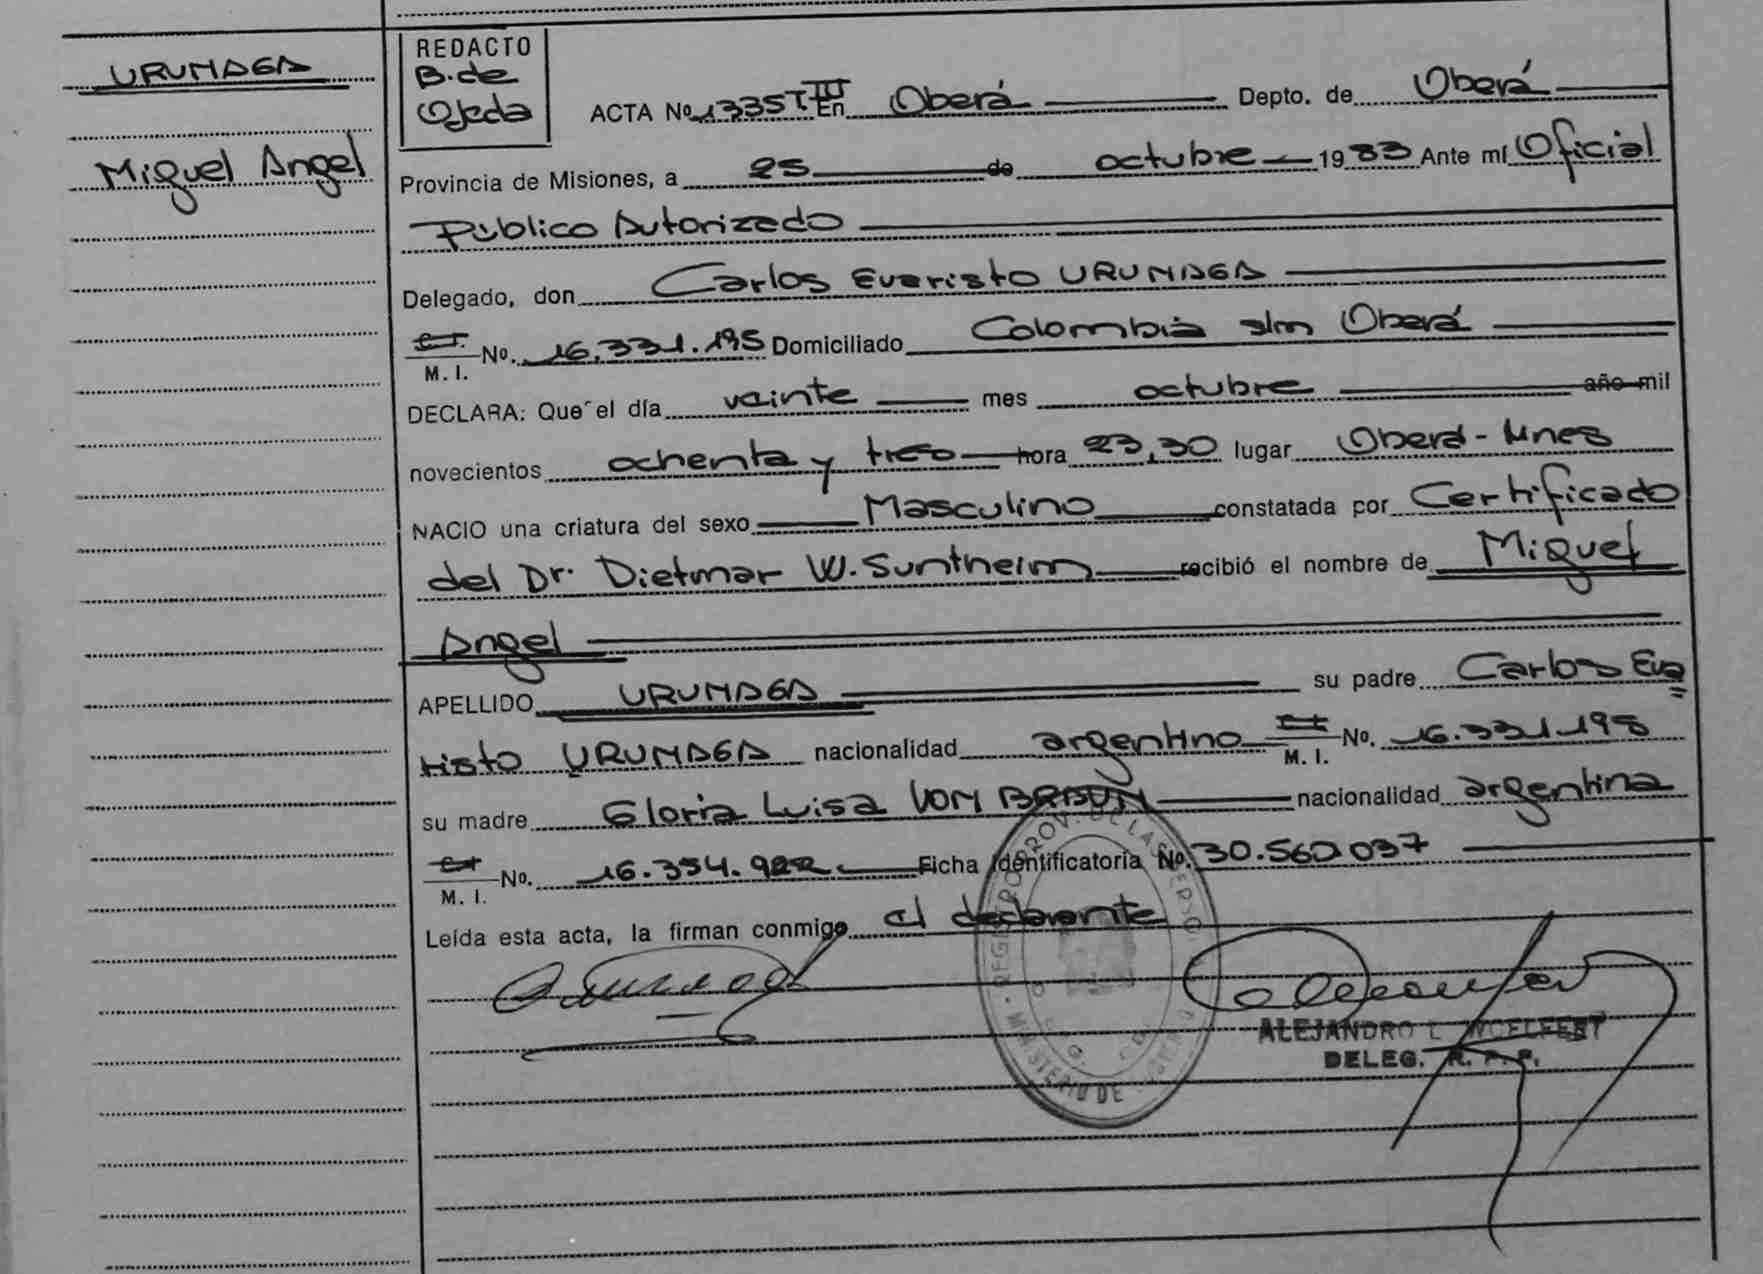 URUNAGA
Miguel Angel
REDACTO
B. de
Ojeda
ACTA No 1335 T III En Oberá Depto. de Oberá
Provincia de Misiones, a 25 de octubre 1983 Ante mí Oficial
Público Autorizado
Delegado, don Carlos Evaristo URUNAGA
C.I.
M. I. No. 16.331.195 Domiciliado Colombia s/n Oberá
DECLARA: Que el día veinte mes octubre año mil
novecientos ochenta y tres hora 23,30 lugar Oberá - Mnes
NACIO una criatura del sexo Masculino constatada por Certificado
del Dr. Dietmar W. Suntheim recibió el nombre de Miguel
Angel
APELLIDO URUNAGA su padre Carlos Eva
risto URUNAGA nacionalidad argentino C.I. M. I. No. 16.331.198
su madre Gloria Luisa VON BRAUN nacionalidad argentina
C.I.
M. I. No. 16.354.922 Ficha Identificatoria No. 30.560.037
Leída esta acta, la firman conmigo el declarante
ALEJANDRO L
DELEG. R. P. P.
REGISTRO PROV. DE LAS PERSO
MINISTERIO DE